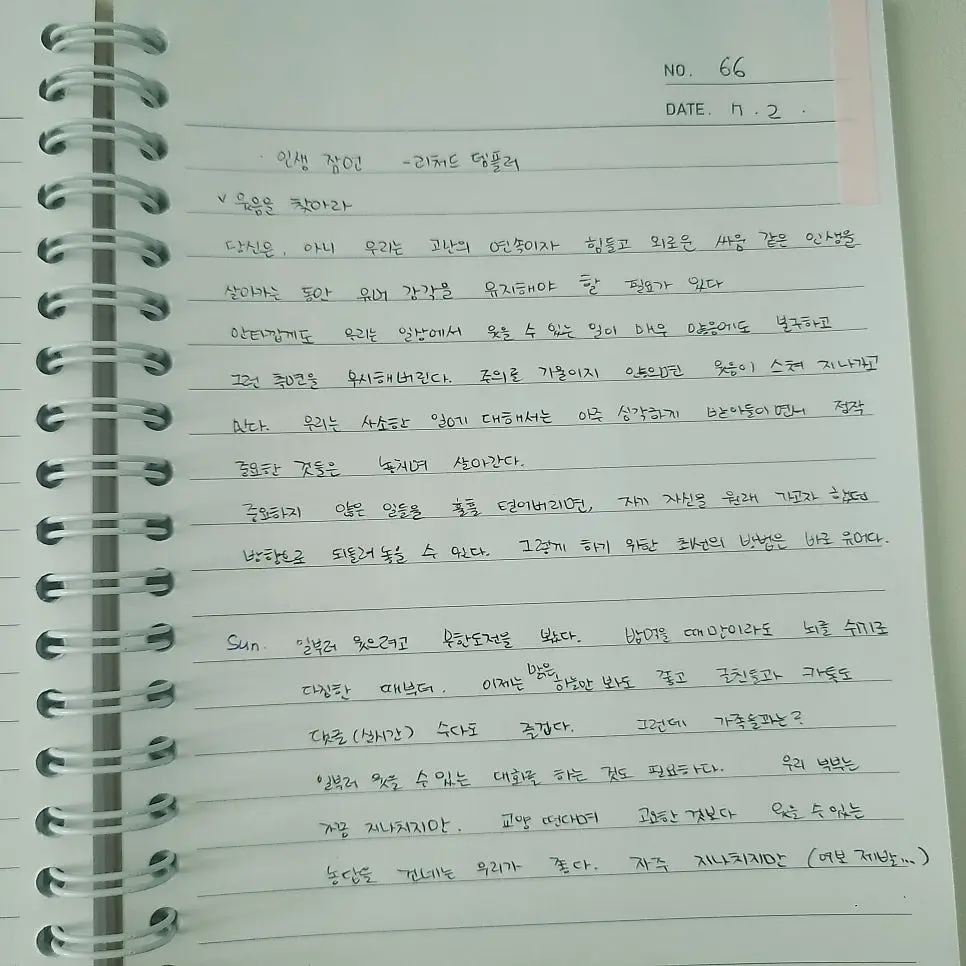 NO. 66
DATE. 7. 2.
인생 잠언 - 리처드 템플러
v 웃음을 찾아라
당신은, 아니 우리는 고난의 연속이자 힘들고 외로운 싸움 같은 인생을
살아가는 동안 유머 감각을 유지해야 할 필요가 있다
안타깝게도 우리는 일상에서 웃을 수 있는 일이 매우 많음에도 불구하고
그런 측면을 무시해버린다. 주의를 기울이지 않으면 웃음이 스쳐 지나가고
만다. 우리는 사소한 일에 대해서는 아주 심각하게 받아들이면서 정작
중요한 것들은 놓치며 살아간다.
중요하지 않은 일들을 훌훌 털어버리면, 자기 자신을 원래 가고자 했던
방향으로 되돌려 놓을 수 있다. 그렇게 하기 위한 최선의 방법은 바로 유머다.
Sun. 일부러 웃으려고 무한도전을 봤다. 밥먹을 때 만이라도 뇌를 쉬기로
다짐한 때부터. 이제는 맑은 하늘만 봐도 좋고 글친들과 카톡도
댓글(실시간) 수다도 즐겁다. 그런데 가족들과는?
일부러 웃을 수 있는 대화를 하는 것도 필요하다. 우리 부부는
가끔 지나치지만. 교양 떤다며 고요한 것보다 웃을 수 있는
농담을 건네는 우리가 좋다. 자주 지나치지만 (여보 제발...)